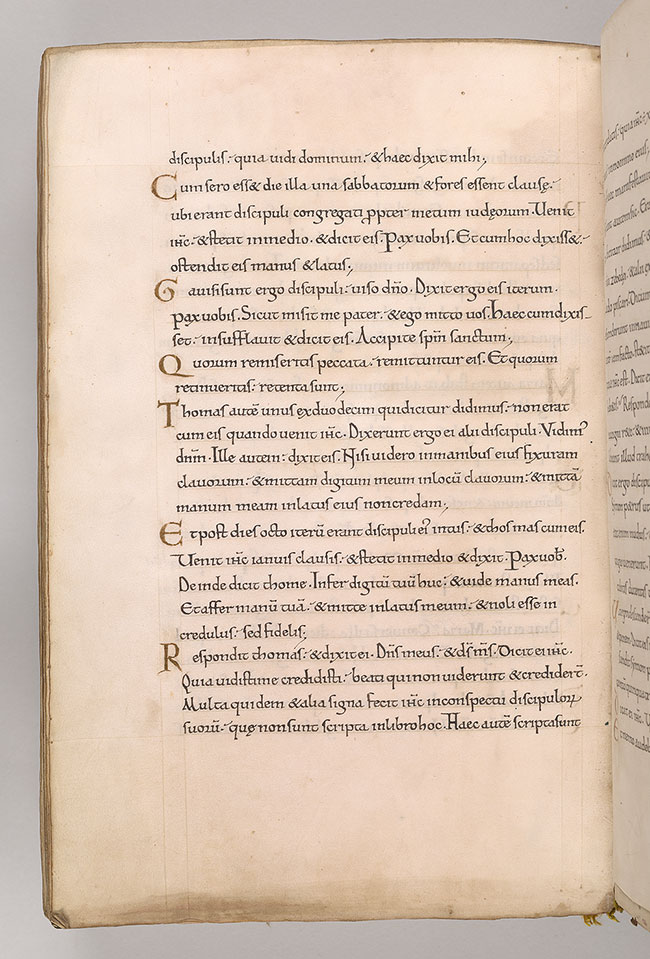 discipulis· quia uidi dominum· &haec dixit mihi;
Cum sero ess& die illa una sabbatorum &fores essent clausę·
ubi erant discipuli congregati ppter metum iudęorum. Uenit
ihc· &stetit inmedio· &dicit eis. Pax uobis. Et cum hoc dixiss&·
ostendit eis manus &latus;
Gauisi sunt ergo discipuli· uiso dño. Dixit ergo eis iterum·
pax uobis. Sicut misit me pater· &ego mitto uos. Haec cum dixis
set· insufflauit &dicit eis. Accipite spm̄ sanctum;
Quorum remiseritis peccata· remittuntur eis. Et quorum
retinueritis· retenta sunt;
Thomas autē unus exduodecim quidicitur didimus· non erat
cum eis quando uenit ihc· Dixerunt ergo ei alii discipuli· Vidim᾽
dnm̄. Ille autem· dixit eis. Nisi uidero inmanibus eius fixuram
clauorum· &mittam digitum meum inlocū clauorum· &mittā
manum meam inlatus eius non credam;
Et post dies octo iterū erant discipuli ei᾽ intus· &thomas cum eis.
Uenit ihc ianuis clausis· &stetit inmedio &dixit· Pax uob̄.
Deinde dicit thome· Infer digitū tuū huc· &uide manus meas.
Et affer manū tuā· &mitte inlatus meum· &noli esse in
credulus· sed fidelis;
Respondit thomas· &dixit ei. Dn̄s meus· &ds̄ ms̄. Dicit ei ihc·
Quia uidisti me credidisti· beati qui non uiderunt &credidert̄.
Multa quidem &alia signa fecit ihc inconspectu discipuloꝝ
suorū· quę non sunt scripta inlibro hoc. Haec autē scripta sunt